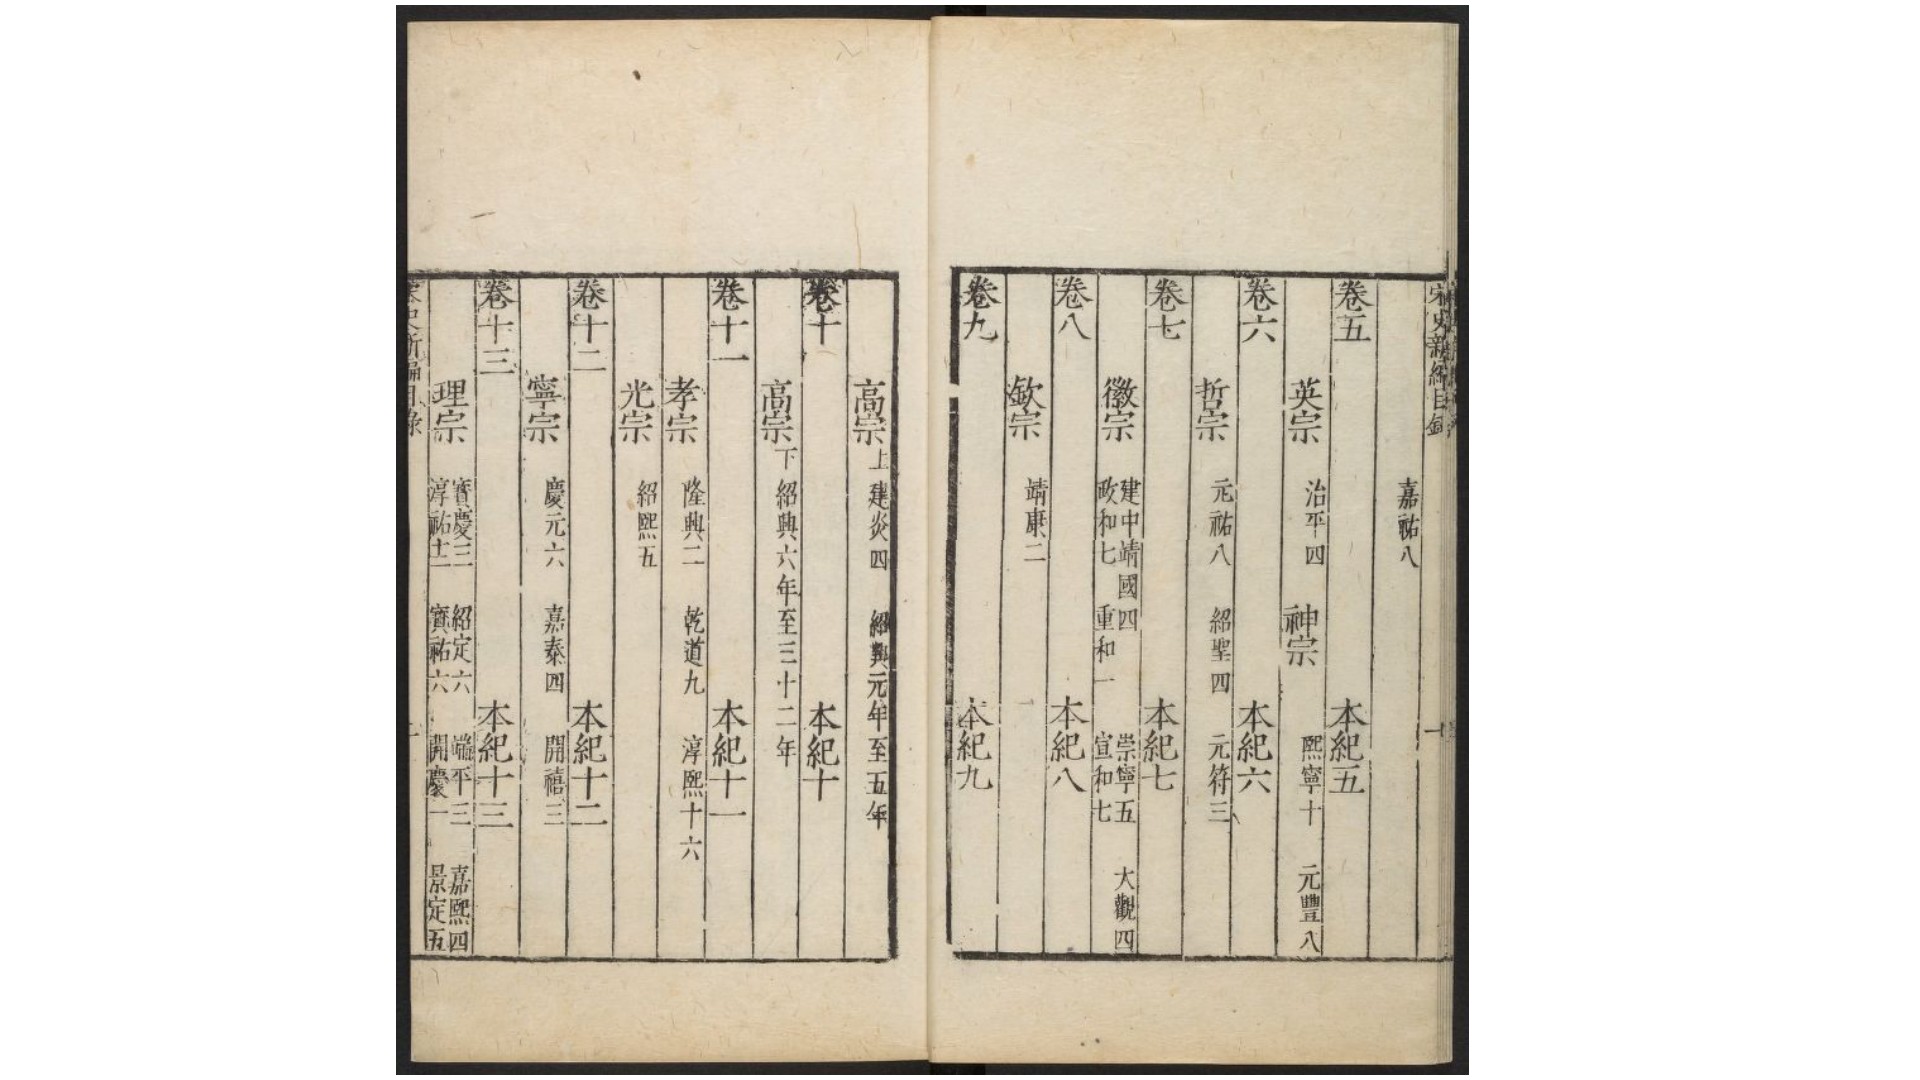 宋史新編目錄
嘉祐八
卷五 本紀五
英宗 治平四 神宗 熙寧十 元豐八
卷六 本紀六
哲宗 元祐八 紹聖四 元符三
卷七 本紀七
徽宗 建中靖國四 崇寧五 大觀四
政和七 重和一 宣和七
卷八 本紀八
欽宗 靖康二
卷九 本紀九
高宗上 建炎四 紹興元年至五年
卷十 本紀十
高宗下 紹興六年至三十二年
卷十一 本紀十一
孝宗 隆興二 乾道九 淳熙十六
光宗 紹熙五
卷十二 本紀十二
寧宗 慶元六 嘉泰四 開禧三
卷十三 本紀十三
理宗 寶慶三 紹定六 端平三 嘉熙四
淳祐十二 寶祐六 開慶一 景定五
宋史新編目錄